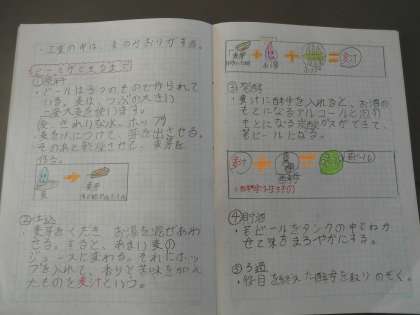 ・工場の中は、麦のかおりがする。
ビールができるまで
①原料
・ビールは3つのもので作られて
いる。麦は、つぶの大きい
二条大麦を使います。
きれいな水、ホップ
麦を水につけて、芽を出させる。
そのあと乾かせて、麦芽を
作る。
麦
麦芽
②仕込
・麦芽をくだき、お湯を混ぜあわ
せる。すると、あまい麦の
ジュースに変わる。それにホッ
プを入れて、香りと苦味をかん
だものを麦汁という。
お湯
ホップ
麦汁
③発酵
・麦汁に酵母を入れると、お酒の
もとになるアルコールと泡の
もとになる炭酸ガスができて
若ビールとなる。
麦汁
酵母
若ビール
④貯酒
・若ビールをタンクの中でねか
せて味をまろやかにする。
⑤ろ過
・役目を終えた酵母を取りのぞく。